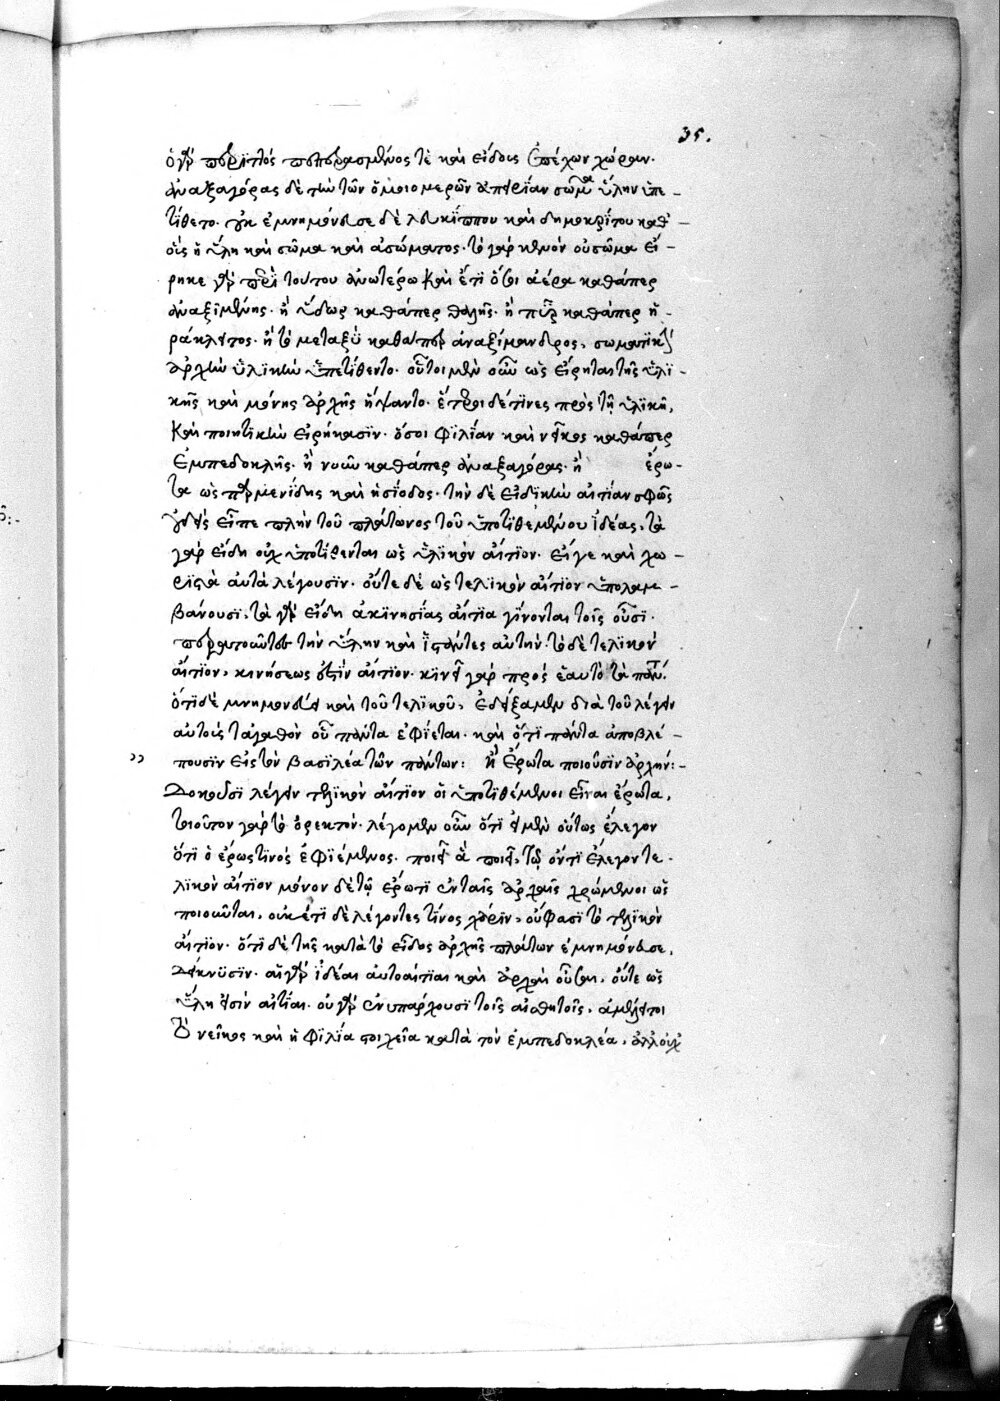 35.
ὁ γὰρ περιττός πεπερασμένος τὲ καὶ εἴδους ἐπέχων χώραν.
ἀναξαγόρας δὲ τὴν τῶν ὁμοιομερῶν ἀπειρίαν σωμα ὕλην ὑπε -
τίθετο. ἐμνημόνευσε δὲ λευκίππου καὶ δημοκρίτου καθ' -
οἷς ἡ ὕλη καὶ σῶμα καὶ ἀσώματος. τὸ γὰρ κενὸν οὐ σῶμα εἴ -
ρηκε γὰρ περὶ τούτου ἀνωτέρω καὶ ἔτι ὅσοι ἀέρα καθάπερ
ἀναξιμένης. ἢ ὕδωρ καθάπερ θαλῆς. ἢ πῦρ καθάπερ ἡ -
ράκλειτος. ἢ τὸ μεταξὺ καθάπερ ἀναξίμανδρος, σωματικὴν
ἀρχὴν ὑλικὴν ὑπετίθεντο. οὗτοι μὲν οὖν ὡς εἴρηται τῆς ὑλι -
κῆς καὶ μόνης ἀρχῆς ἥψαντο. ἕτεροι δέ τινες πρὸς τῇ ὑλικῇ,
καὶ ποιητικὴν εἰρήκασιν. ὅσοι φιλίαν καὶ νεῖκος καθάπερ
ἐμπεδοκλῆς. ἢ νοῦν καθάπερ ἀναξαγόρας. ἢ ἔρω -
τα ὡς παρμενίδης καὶ ἡσίοδος. τὴν δὲ εἰδικὴν αἰτίαν σαφῶς
οὐδεὶς εἶπε πλὴν τοῦ πλάτωνος τοῦ ὑποτιθεμένου ἰδέας, τὰ
γὰρ εἴδη οὐχ ὑποτίθενται ὡς ὑλικὸν αἴτιον. εἴγε καὶ χω -
ριστὰ αὐτὰ λέγουσιν. οὔτε δὲ ὡς τελικὸν αἴτιον ὑπολαμ -
βάνουσι, τὰ γὰρ εἴδη ἀκινησίας αἴτια γίνονται τοῖς οὖσι.
περατοῦντα τὴν ὕλην καὶ ἱστάντες αὐτήν. τὸ δὲ τελικὸν
αἴτιον, κινήσεως ἐστὶν αἴτιον. κινεῖ γὰρ πρὸς ἑαυτὸ τὰ πάντα.
ὅτι δὲ μνημονεύει καὶ τοῦ τελικοῦ, ἐδείξαμεν διὰ τοῦ λέγειν
αὐτοὺς τἀγαθὸν οὗ πάντα ἐφίεται. καὶ ὅτι πάντα ἀποβλέ -
πουσιν εἰς τὸν βασιλέα τῶν πάντων: ἢ ἔρωτα ποιοῦσιν ἀρχήν: -
Δοκοῦσι λέγειν τελικὸν αἴτιον οἱ ὑποτιθέμενοι εἶναι ἔρωτα,
τοιοῦτον γὰρ τὸ ὀρεκτόν. λέγομεν οὖν ὅτι εἰ μὲν οὕτως ἔλεγον
ὅτι ὁ ἔρως τινὸς ἐφιέμενος. ποιεῖ ἃ ποιεῖ, τῷ ὄντι ἔλεγον τε -
λικὸν αἴτιον μόνον δὲ τῷ ἔρωτι ἐν ταῖς ἀρχαῖς χρώμενοι ὡς
ποιοῦνται, οὐκ ἔτι δὲ λέγοντες τίνος χάριν, οὔ φασι τὸ τελικὸν
αἴτιον. ὅτι δὲ τῆς κατὰ τὸ εἶδος ἀρχῆς πλάτων ἐμνημόνευσε,
δείκνυσιν. αἱ γὰρ ἰδέαι αὐτοαιτίαι καὶ ἀρχαὶ οὖσαι, οὔτε ὡς
ὕλη εἰσὶν αἰτίαι. οὐ γὰρ ἐνυπάρχουσι τοῖς αἰσθητοῖς, ἀμέλει τοι
τὸ νεῖκος καὶ ἡ φιλία στοιχεῖα κατὰ τὸν ἐμπεδοκλέα, ἀλλ' οὐχ